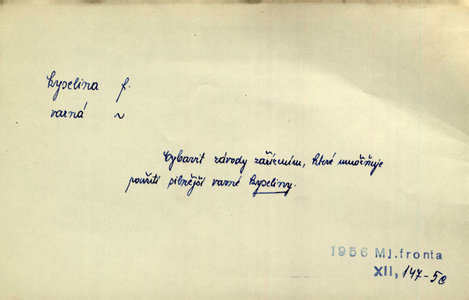 kyselina f.
varná ~
Vybavit závody zařízením, které umožňuje
použití silnější varné kyseliny.
1956 Ml.fronta
XII, 147-5c